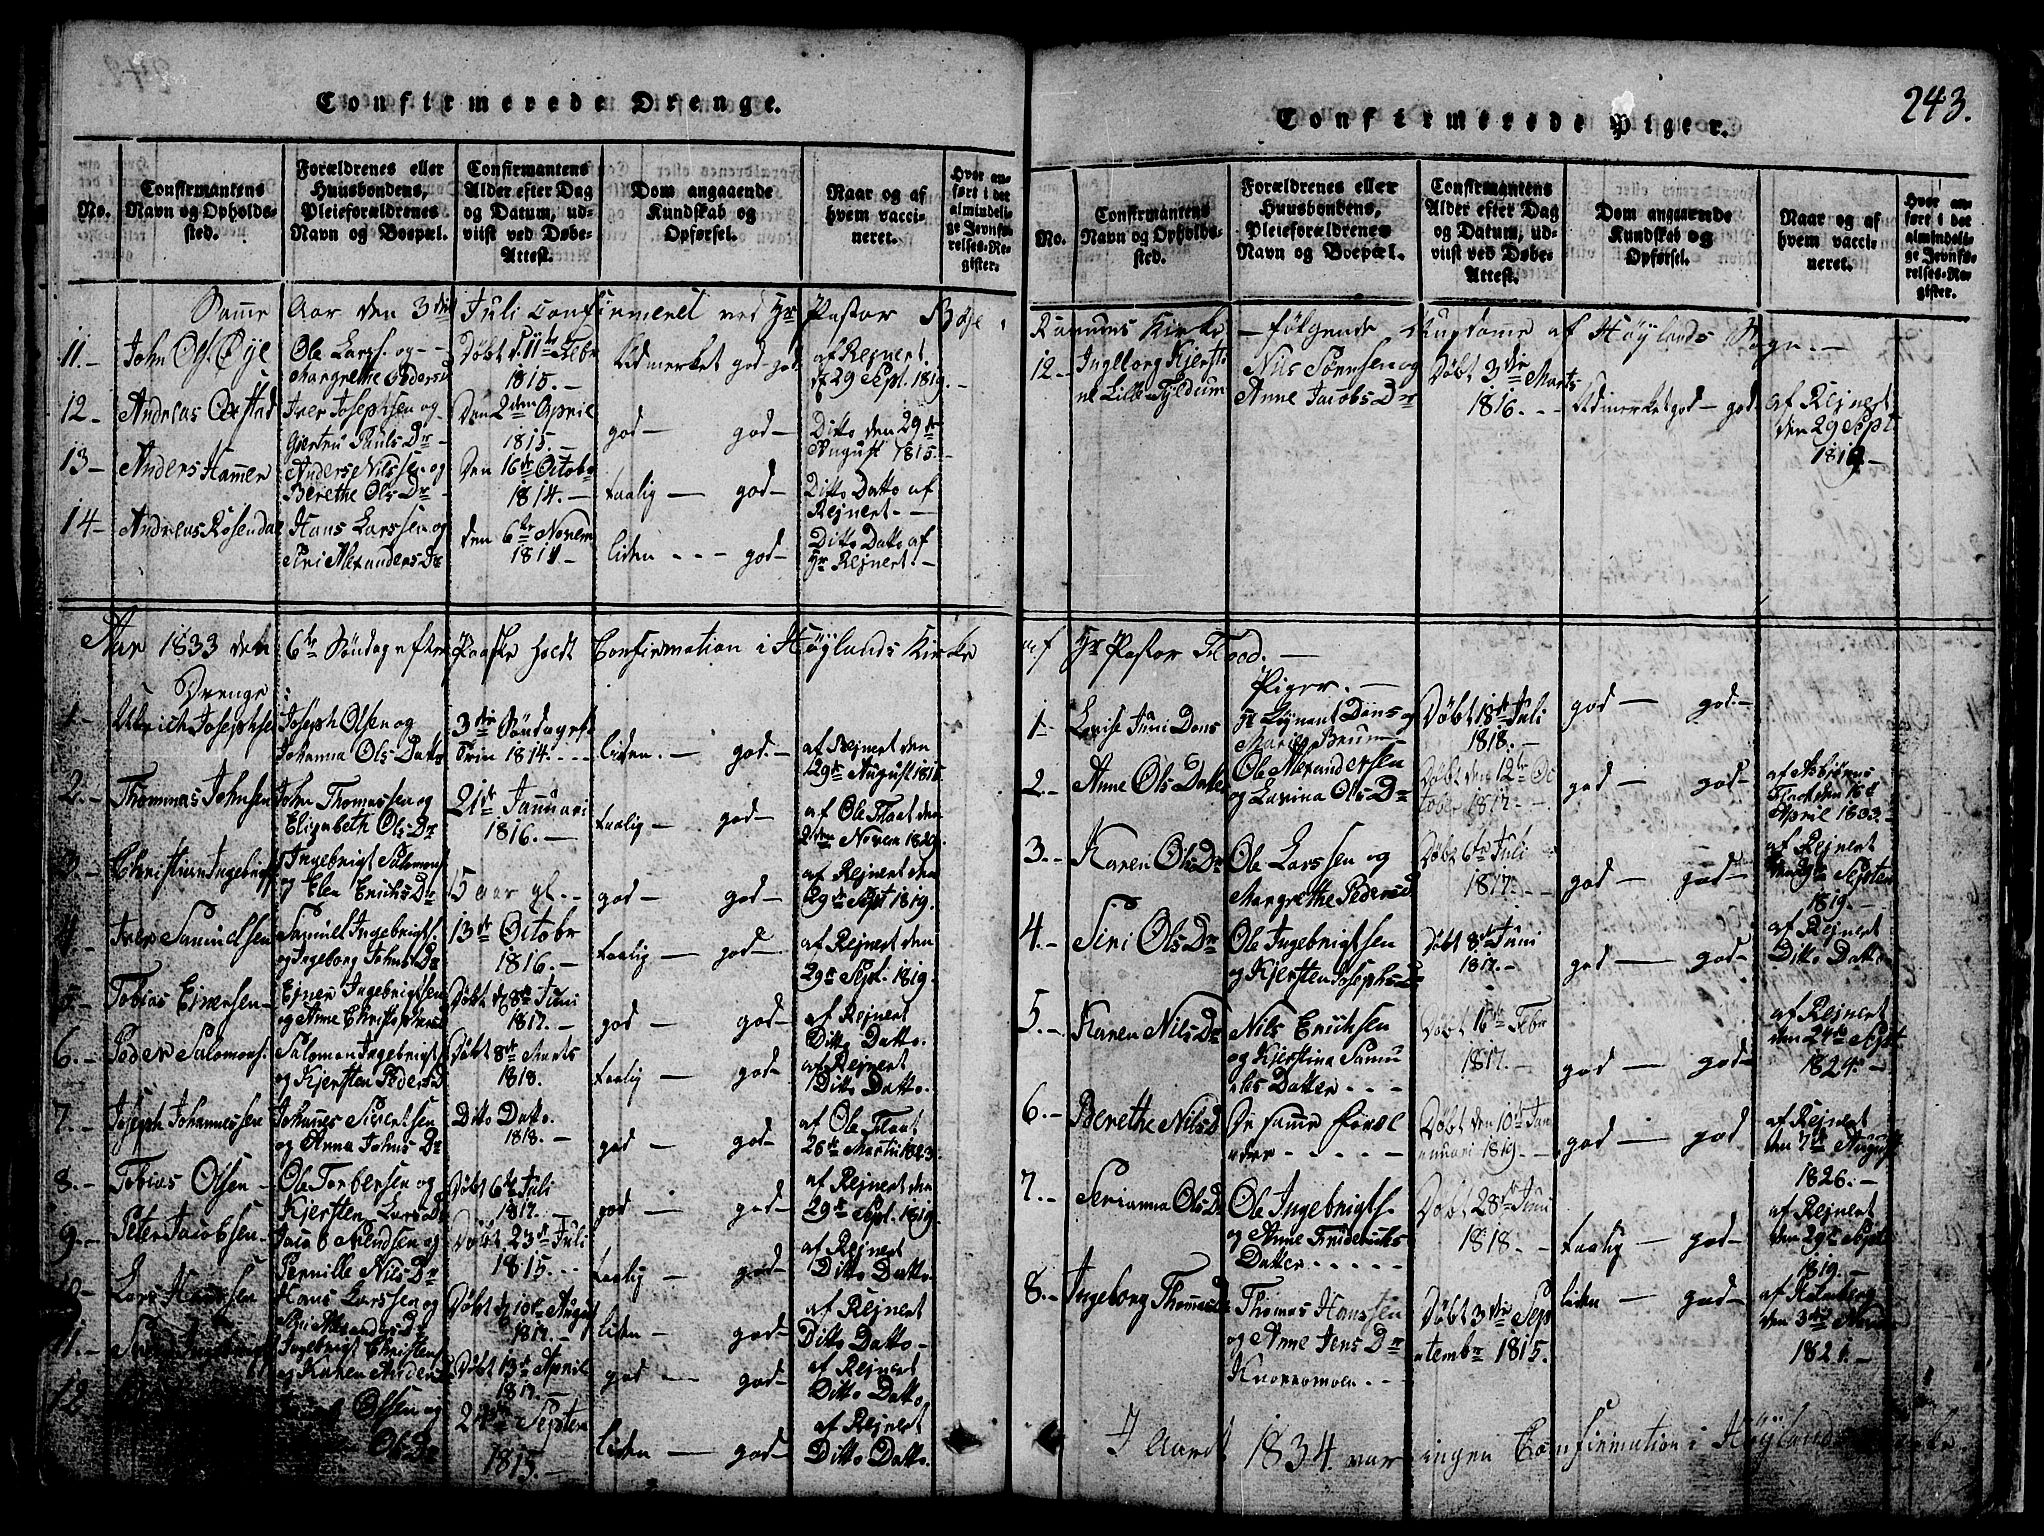 243.
Confirmerede Drenge.
No.
Confirmantens
Navn og Opholds-
sted.
Forældrenes eller
Huusbondens,
Pleieforældrenes
Navn og Boepæl.
Confirmantens
Alder efter Dag
og Datum, ud-
viist ved Døbe-
Attest.
Dom angaaende
Kundskab og
Opførsel.
Naar og af
hvem vacci-
neret.
Hvor an-
ført i det
almindeli-
ge Jevnfø-
relses-Re-
gister.
Samme Aar den 3die Juli confirmeret ved Hr Pastor Bøje i
11.- John Ols. Øje
Ole Larss. og -
Margrethe Peders D
Døbt d. 11te Febr
1815. -
Udmerket god god
af Rejnert
d 29 Sept. 1819. -
12 - Andreas Oxstad
Iver Josephsen og
Gjertru Pauls Dr -
Den 2den April
1815. -
god - god -
Ditto den 29de
August 1815. -
13 - Anders Hammer
Anders Nilssen og
Berethe Ols Dr -
Den 16de Octobr
1814. -
taalig - god -
Ditto Datto af
Rejnert. -
14 - Andreas Rosendal
Hans Larssen og
Siri Alexanders Dr
den 6te Novem
1814 -
liden - - - god -
Ditto Datto af
Hr Rejnert. -
Aar 1833 den 6te Søndag efter Paaske holdt Confirmation i Høylands Kirke
Drenge
1 - Ulrich Josephsen
Joseph Olsen og
Johanna Ols Datter
3die Søndag eft
Trin 1814. - - -
liden. - god -
af Rejnert den
29de August 1815
2. - Thommas Johnsen
John Thomassen og
Elizabeth Ols Dr
21de Januari
1816. -
taalig - god -
af Ole Flaat den
2den Novem 1829.
3. - Christian Ingebrigts
Ingebrigt Salomons
og Elen Erichs Dr
15 aar gl. -
god - god -
af Rejnert den
29de Sept 1819.
4. - Iver Samuelsen
Samuel Ingebrigts.
og Ingeborg Johns Dr
13de Octobr
1816. -
taalig - god -
af Rejnert den
29de Sept. 1819.
5. - Tobias Ejnersen -
Ejner Ingebrigtsen
og Anne Christophers D
Døbt d. 8de Juni
1817. -
god - god -
af Rejnert
Ditto Datto.
6. - Peder Salomons.
Salomon Ingebrigts
og Kjersten Peders D
Døbt 8de Marts
1818.
taalig - god -
af Rejnert
Ditto Datto.
7. - Joseph Johannessen
Johannes Sivertsen
og Anna Johns Dr
Ditto Datto.
1818. -
god - god -
af Ole Flaat
26de Martii 1823.
8. - Tobias Olsen -
Ole Torbersen og
Kjersten Lars Dr
Døbt 6te Juli
1817. -
god - god -
af Rejnert den
29de Sept. 1819.
9. - Peter Jacobsen -
Jacob Svendsen og
Pernille Nils Dr
Døbt 23de Juli
1815. - -
taalig - god -
af Rejnert
Ditto Datto.
10 - Lars Hanssen
Hans Larssen og
Siri Alexanders D.
Døbt d. 10de August
1817. -
liden - god -
af Rejnert
Ditto Datto -
11. -
Ingebrigt Christens
og Karen Anders D
Døbt 13de April
1817. -
god - god -
af Rejnert
Ditto Datto.
12
Olsen og
Ols Dr
24de Septem
1815. -
liden - god -
af Rejnert
Ditto Datto.
Confirmerede Piger.
No.
Confirmantens
Navn og Opholds-
sted.
Forældrenes eller
Huusbondens,
Pleieforældrenes
Navn og Boepæl.
Confirmantens
Alder efter Dag
og Datum, ud-
viist ved Døbe-
Attest.
Dom angaaende
Kundskab og
Opførsel.
Naar og af
hvem vacci-
neret.
Hvor an-
ført i det
almindeli-
ge Jevnfø-
relses-Re-
gister.
Ranums Kirke - følgende Ungdome af Høylands Sogn. -
12 - Ingleborg Kjersti-
ne Lille-Fyldeum
Nils Sørensen og
Anne Jacobs Dr
Døbt 3die Marts
1816. - -
Udmerket god - god
af Rejnert
den 29 Sept
1819. -
af Hr Pastor Flood. -
Piger. -
1 - Lovise Juni Dons
Hr Lojnant Dons og
Maries Bruun -
Døbt 18de Juli
1818. -
god - god. -
2. - Anne Ols Datter
Ole Alexandersen
og Lavina Ols Dr
Døbt den 12te Oc
tober 1817. -
god - god -
af Asbjørns
Flaat den 16de
April 1833. -
3. - Karen Ols Dr
Ole Larssen og
Margrethe Peders D
Døbt 6te Juli
1817. -
god - god -
af Rejnert
den 29de Septem
1819. -
4. - Siri Ols Dr
Ole Ingebrigtsen
og Kjersten Josephs D
Døbt 8de Juni
1817. -
god - god -
af Rejnert
Ditto Datto -
5. - Karen Nils Dr
Nils Erichsen
og Kjerstina Samu
els Datter - - -
Døbt 16de Febr
1817. -
god - god -
af Rejnert
den 24de Sept.
1824. -
6. - Berethe Nils D
De samme Foræl
drer - - - -
Døbt den 10de Jan
nuari 1819. -
god - god
af Rejnert
den 7de August
1826. -
7. - Serianna Ols D
Ole Ingebrigts.
og Anne Friderichs
Datter - - - - -
Døbt 28de Juni
1818. -
taalig - god -
af Rejnert
den 29de Sept.
1819. -
8. - Ingeborg Thomas D
Thomas Hanssen
og Anne Jens Dr
Knorromoen. - -
Døbt 3die Sep
tembr 1815.
liden - god -
af Holmberg
den 3die Novem
1821. -
I Aaret 1834. var ingen Confirmation i Høylands Kirke.